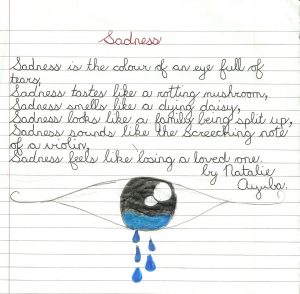 Sadness
Sadness is the colour of an eye full of
tears,
Sadness tastes like a rotting mushroom,
Sadness smells like a dying daisy,
Sadness looks like a family being split up,
Sadness sounds like the screeching note
of a violin,
Sadness feels like losing a loved one.
by Natalie
Ayuba.